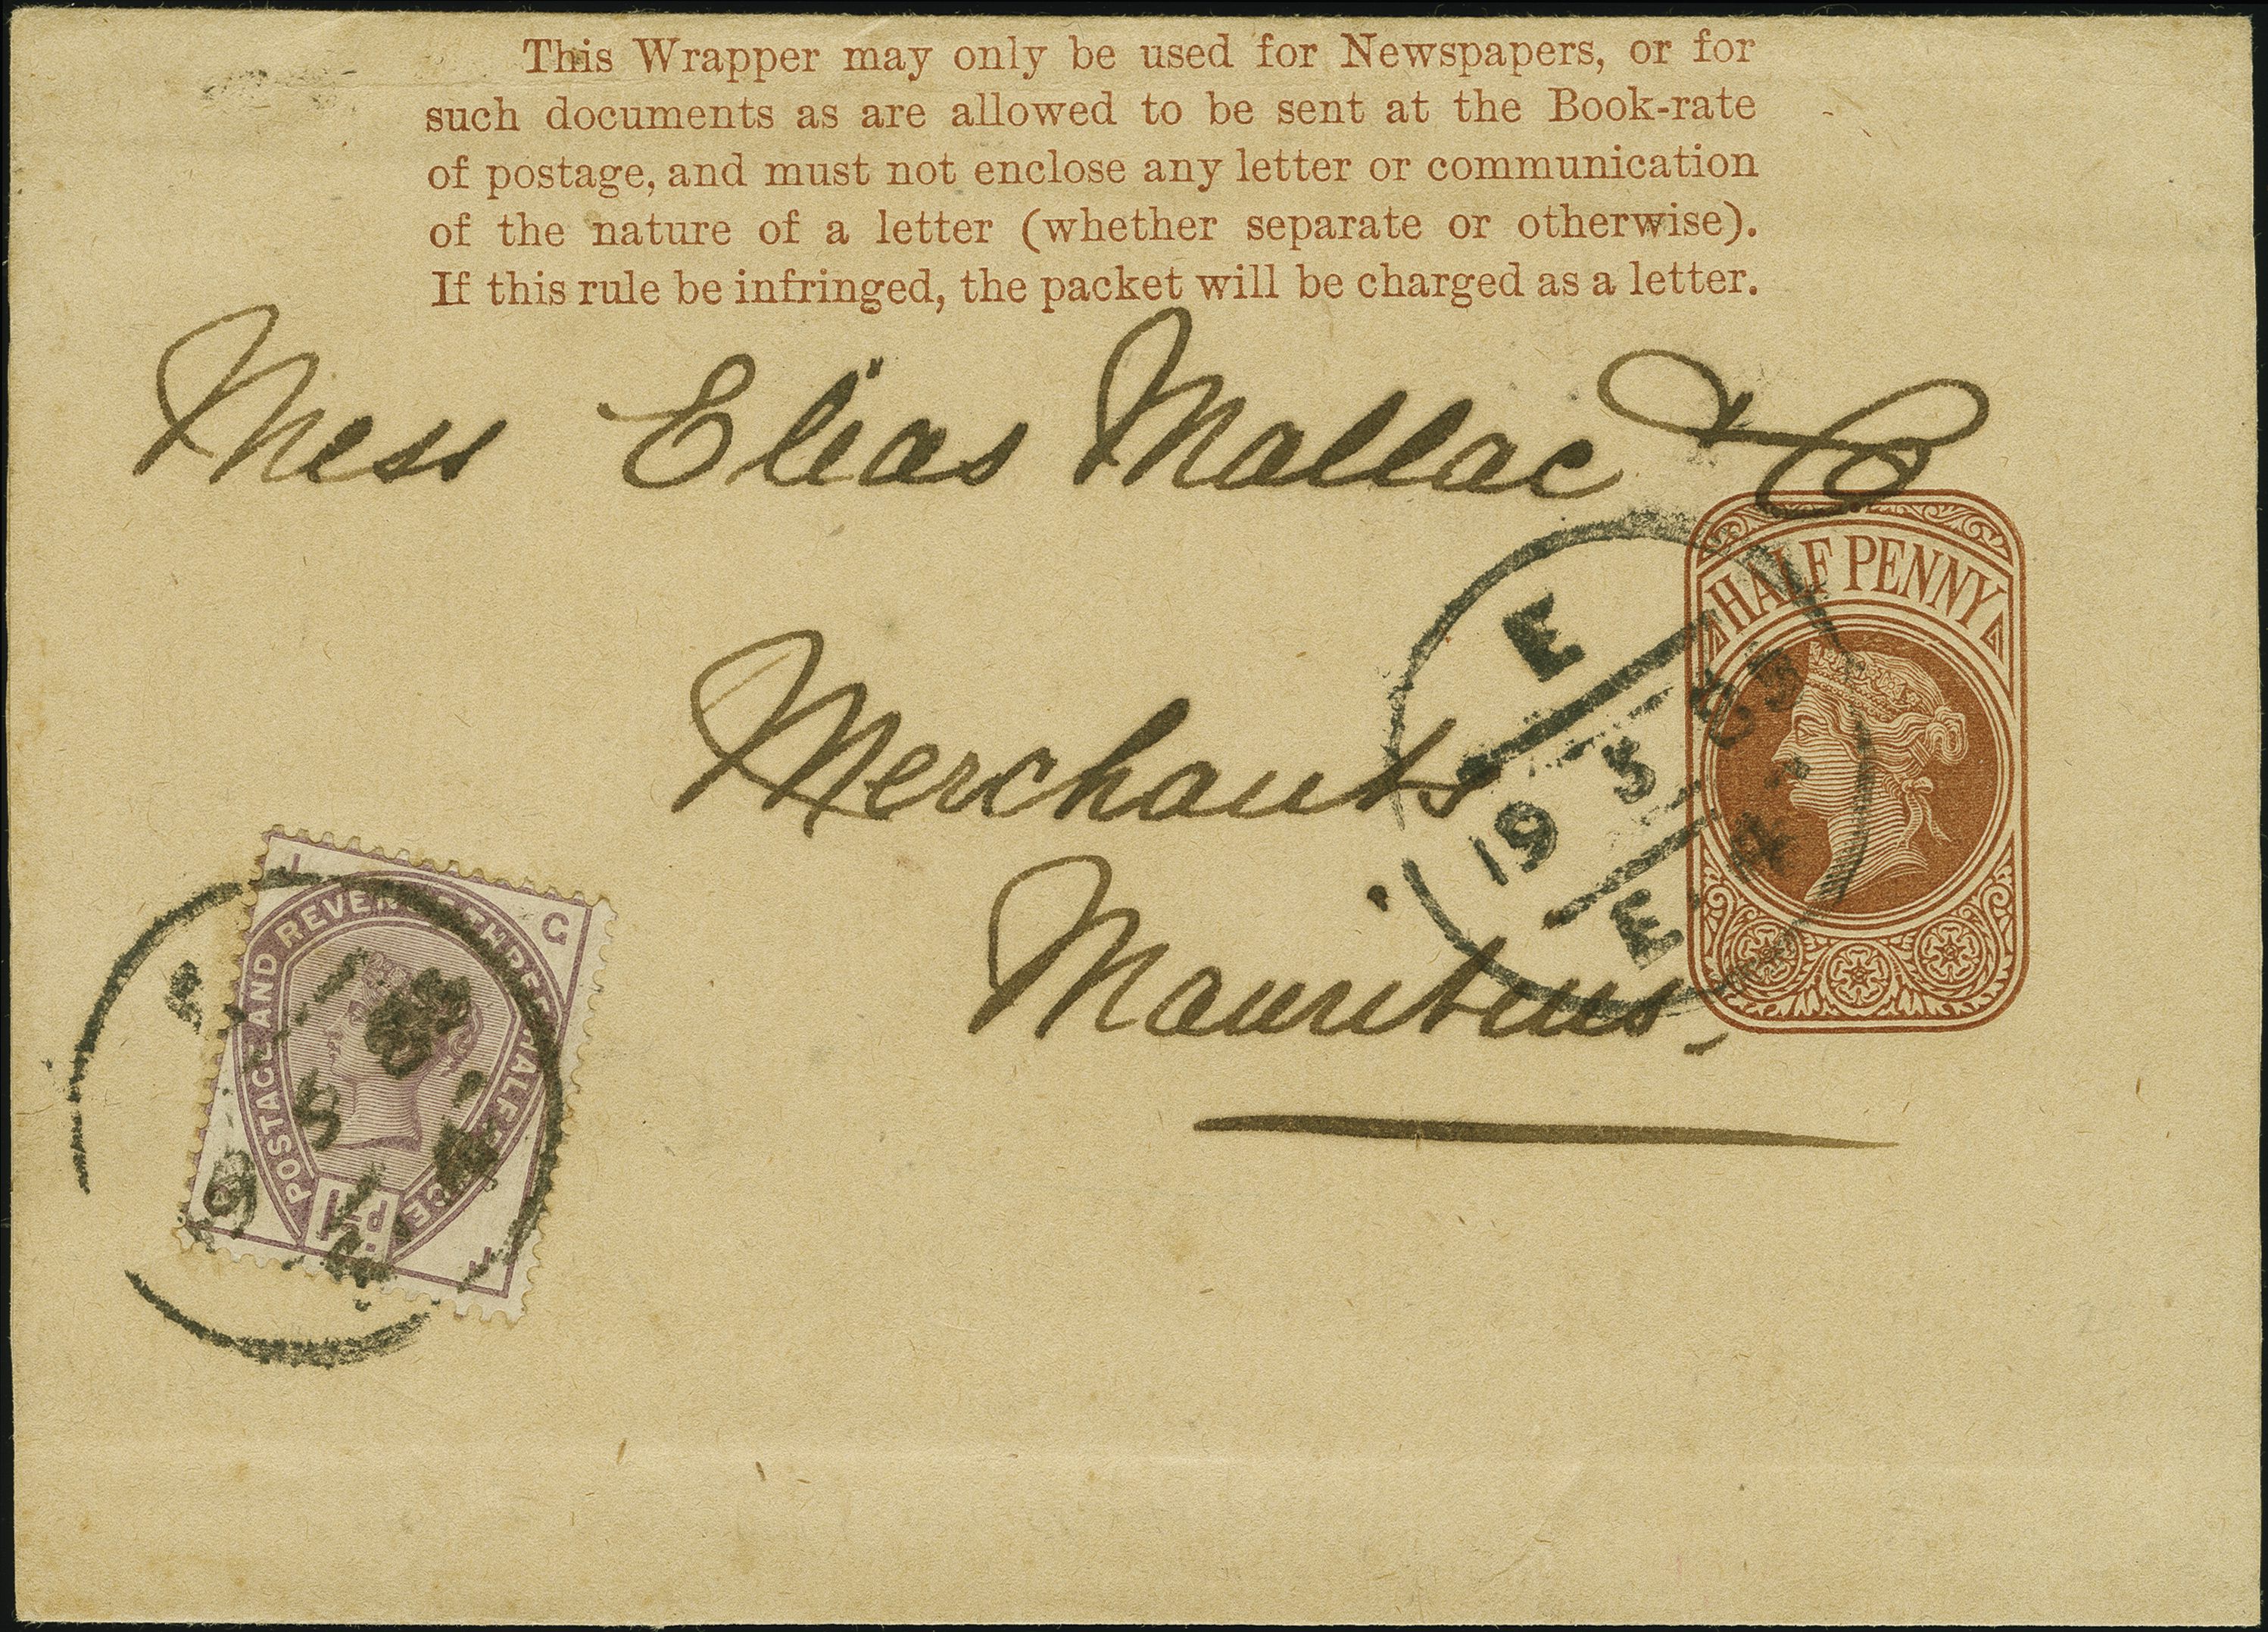 This Wrapper may only be used for Newspapers, or for
such documents as are allowed to be sent at the Book-rate
of postage, and must not enclose any letter or communication
of the nature of a letter (whether separate or otherwise).
If this rule be infringed, the packet will be charged as a letter.
Mess Elias Mallac & Co
HALFPENNY
Merchants
Mauritius,
E
19 5
E
POSTAGE AND REVENUE THREE HALF PENCE
G